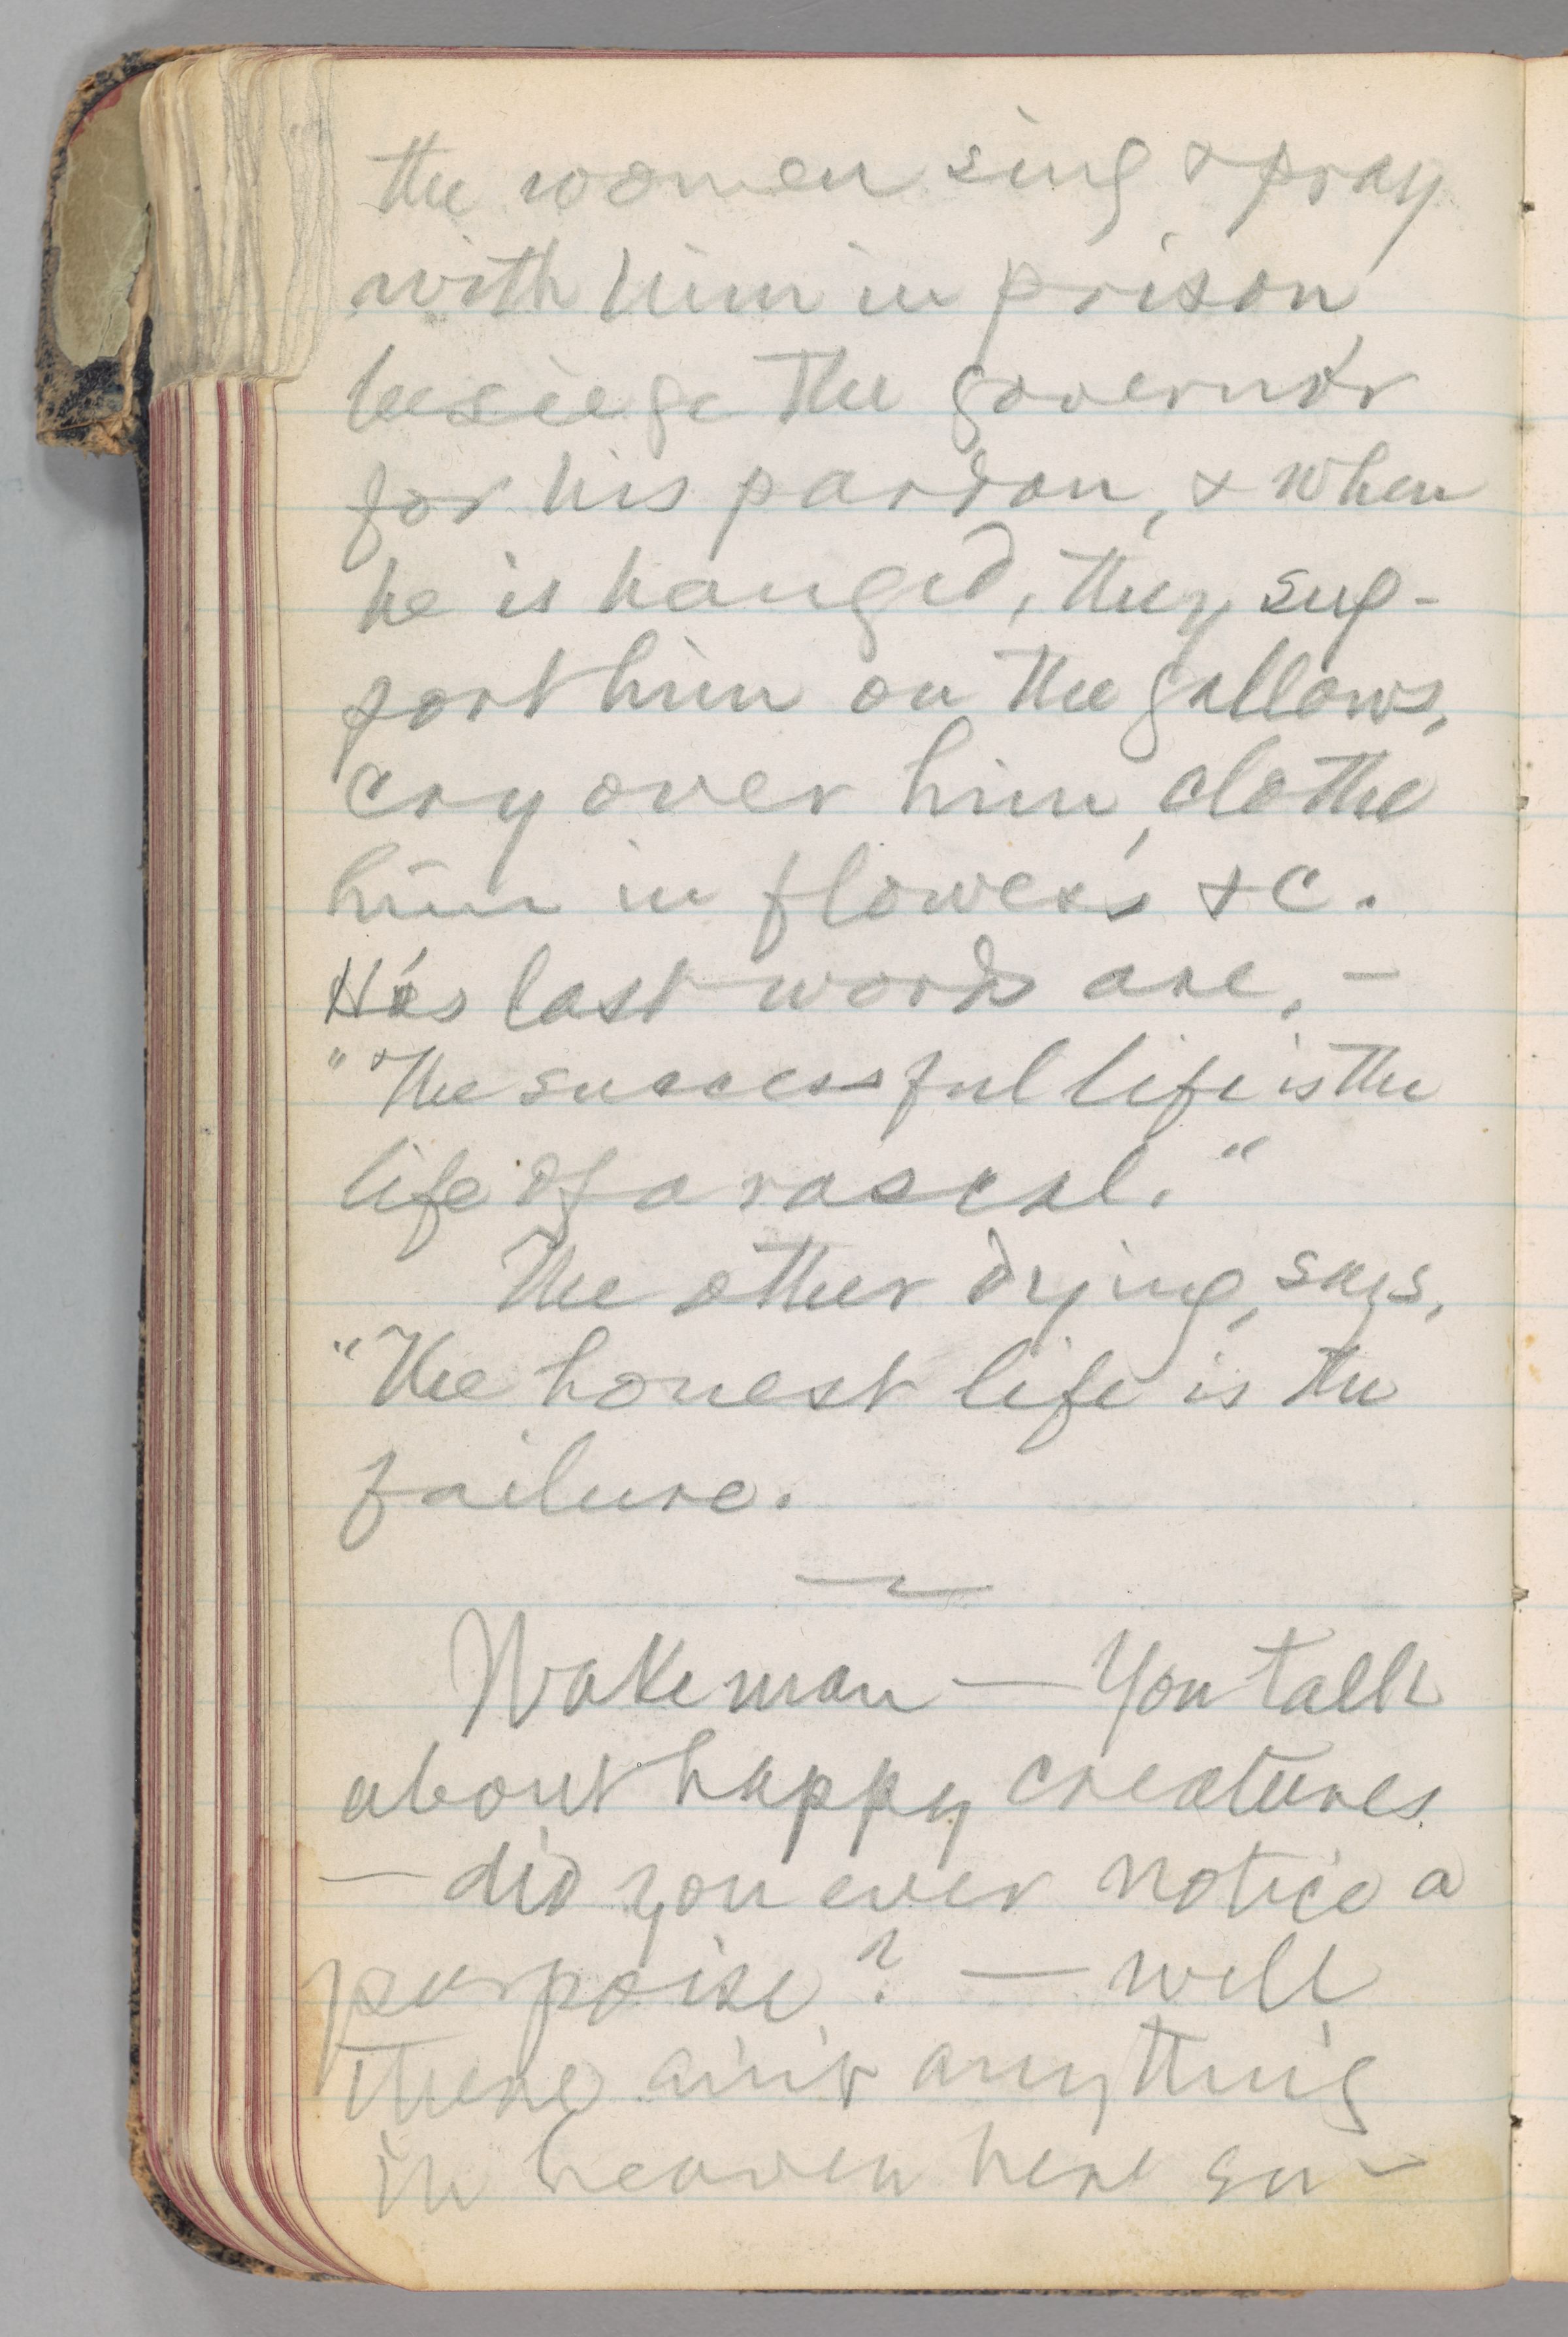 the women sing & pray
with him in prison
besiege the governor
for his pardon, & when
he is hanged, they sup-
port him on the gallows,
cry over him, clothe
him in flowers &c.
His last words are, —
"The successful life is the
life of a rascal."
The other dying, says,
"The honest life is the
failure.
Wakeman — You talk
about happy creatures
— did you ever notice a
porpoise? — well
there ain't anything
in heaven here su-